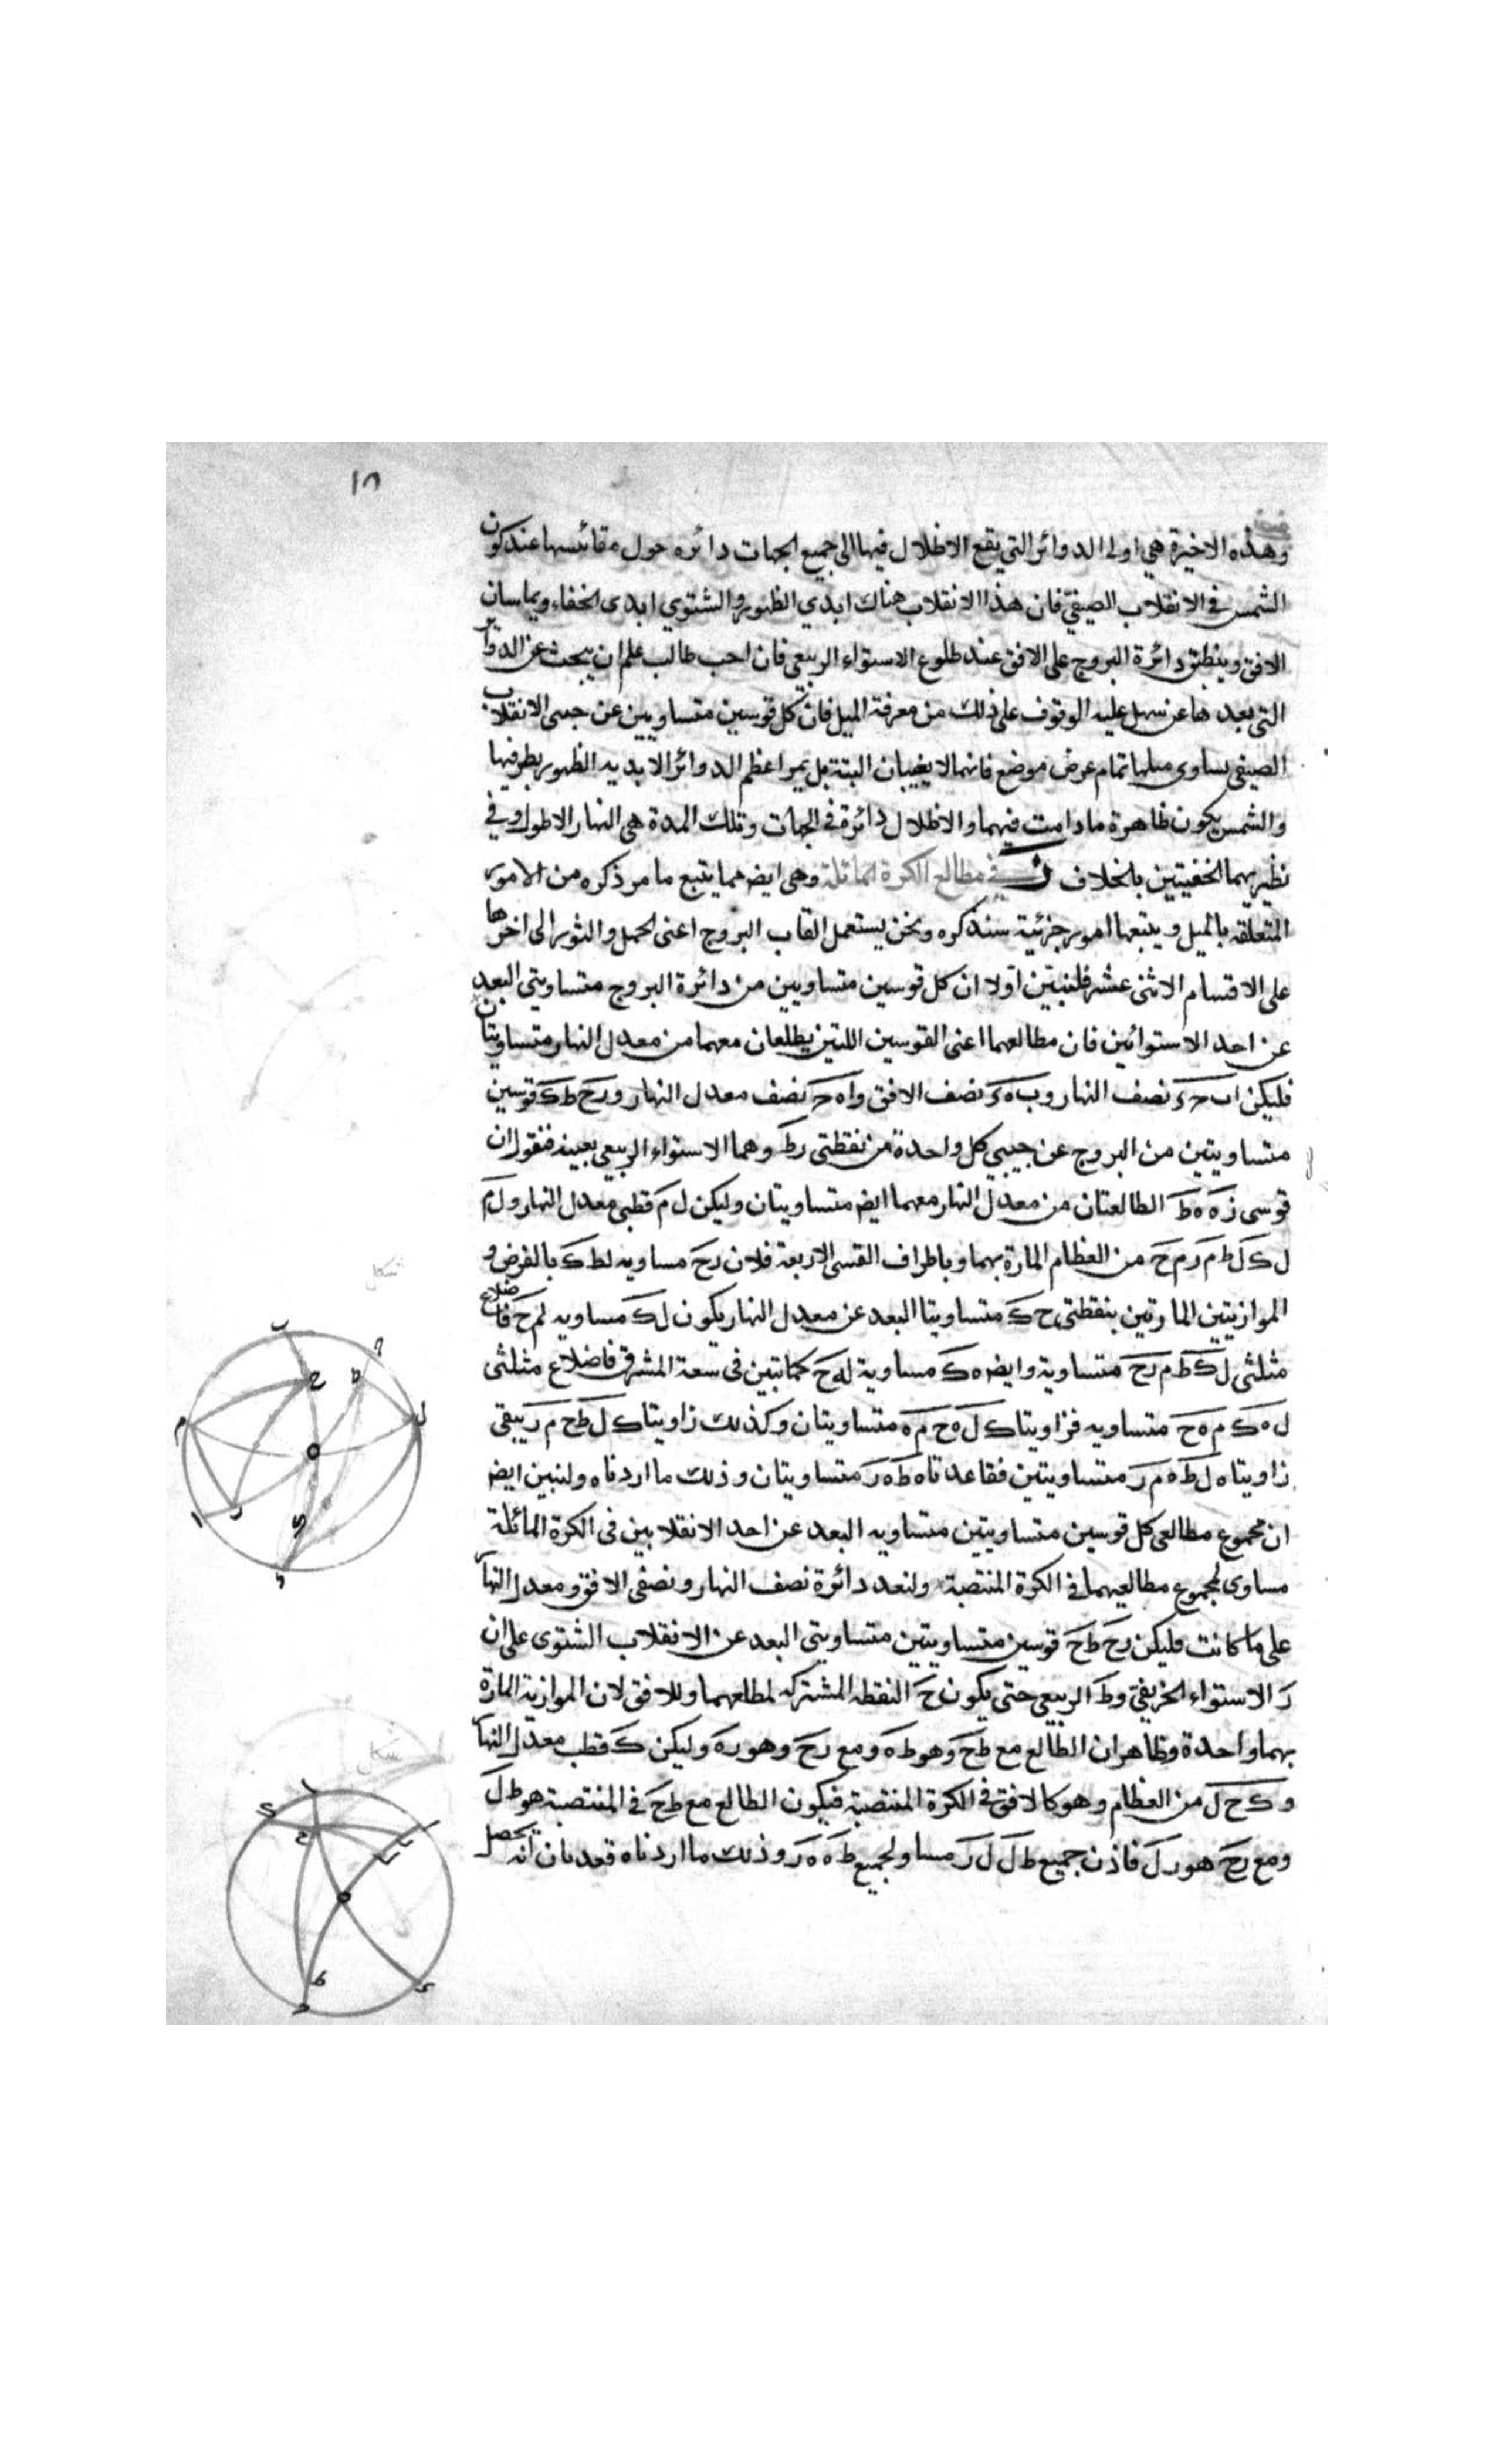 ١٨
وهذه الاخيرة هي اولى الدوائر التي يقع الاظلال فيها الى جميع الجهات دائره حول مقائسها عند كون
الشمس في الانقلاب الصيفي فان هذا الانقلاب هناك ابدي الظهور والشتوي ابدى الخفاء ويماسان
الافق وينطبق دائرة البروج على الافق عند طلوع الاستواء الربيعي فان احب طالب علم ان يبحث عن الدوائر
التي بعد هاعن سهل عليه الوقوف على ذلك من معرفة الميل فان كل قوسين متساويين عن جنبى الانقلاب
الصيفى يساوى ميلها تمام عرض موضع فانهما لا يغيبان البتة بل يمر اعظم الدوائر الابديه الظهور بطرفيها
والشمس يكون ظاهرة ما دامت فيهما والاظلال دائرة في الجهات وتلك المدة هي النهار الاطول وفي
نظيريهما الخفيتين بالخلاف ز في مطالع الكرة المائلة وهى ايض مما يتبع ما مر ذكره من الامور
المتعلقه بالميل ويتبعها امور جزئية سنذكره ونحن يستعمل القاب البروج اعنى الحمل والثور الى اخرها
على الاقسام الاثنى عشر فلنبين اولا ان كل قوسين متساويين من دائرة البروج متساويتى البعد
عن احد الاستوائين فان مطالعهما اعنى القوسين اللتين يطلعان معهما من معدل النهار متساويتان
فليكن اب حد نصف النهار وب ه د نصف الافق وا ه ح نصف معدل النهار و رح ط ك قوسين
متساويتين من البروج عن جنبي كل واحدة من نقطتى رط وهما الاستواء الربيعي بعينه فنقول ان
قوسى ز ه ه ط الطالعتان من معدل النهار معهما ايض متساويتان وليكن ل م قطبى معدل النهار و ل م
ل ك ل ط م ر م ح من العظام المارة بهما وباطراف القسى الاربعة فلان رح مساويه لط ك بالفرض و
الموازيتين المارتين بنقطتى ح ك متساويتا البعد عن معدل النهار يكون ل ك مساويه لم ح فاضلاع
مثلثى ل ك ط م رح متساوية وايض ه ك مساوية له ح كما تبين فى سعة المشرق فاضلاع مثلثى
ل ه ك م ه ح متساويه فزاويتا ك ل ه ح م ه متساويتان وكذلك زاويتا ك ل ط ح م ر يبقى
زاويتا ه ل ط ه م ر متساويتين فقاعدتاه ط ه ر متساويتان وذلك ما اردناه ولنبين ايض
ان مجموع مطالعى كل قوسين متساويتين متساويه البعد عن احد الانقلابين فى الكرة المائلة
مساوى لمجموع مطالعيهما في الكرة المنتصبة ولنعد دائرة نصف النهار ونصفى الافق ومعدل النهار
على ما كانت فليكن رح ط ح قوسين متساويتين متساويتى البعد عن الانقلاب الشتوى على ان
ر الاستواء الخريفى و ط الربيعي حتى يكون ح النقطه المشتركه لمطلعهما وللافق لان الموازيه المارة
بهما واحدة وظاهر ان الطالع مع ط ح وهو ط ه ومع رح وهو ر ه وليكن ك قطب معدل النهار
و ك ح ل من العظام وهو كالافق في الكرة المنتصبة فيكون الطالع مع ط ح في المنتصبة هو ط ل
ومع رح هو ر ل فاذن جميع ط ل ل ر مساو لجميع ط ه ه ر وذلك ما اردناه فقد بان انه يحصل
شكل
شكل